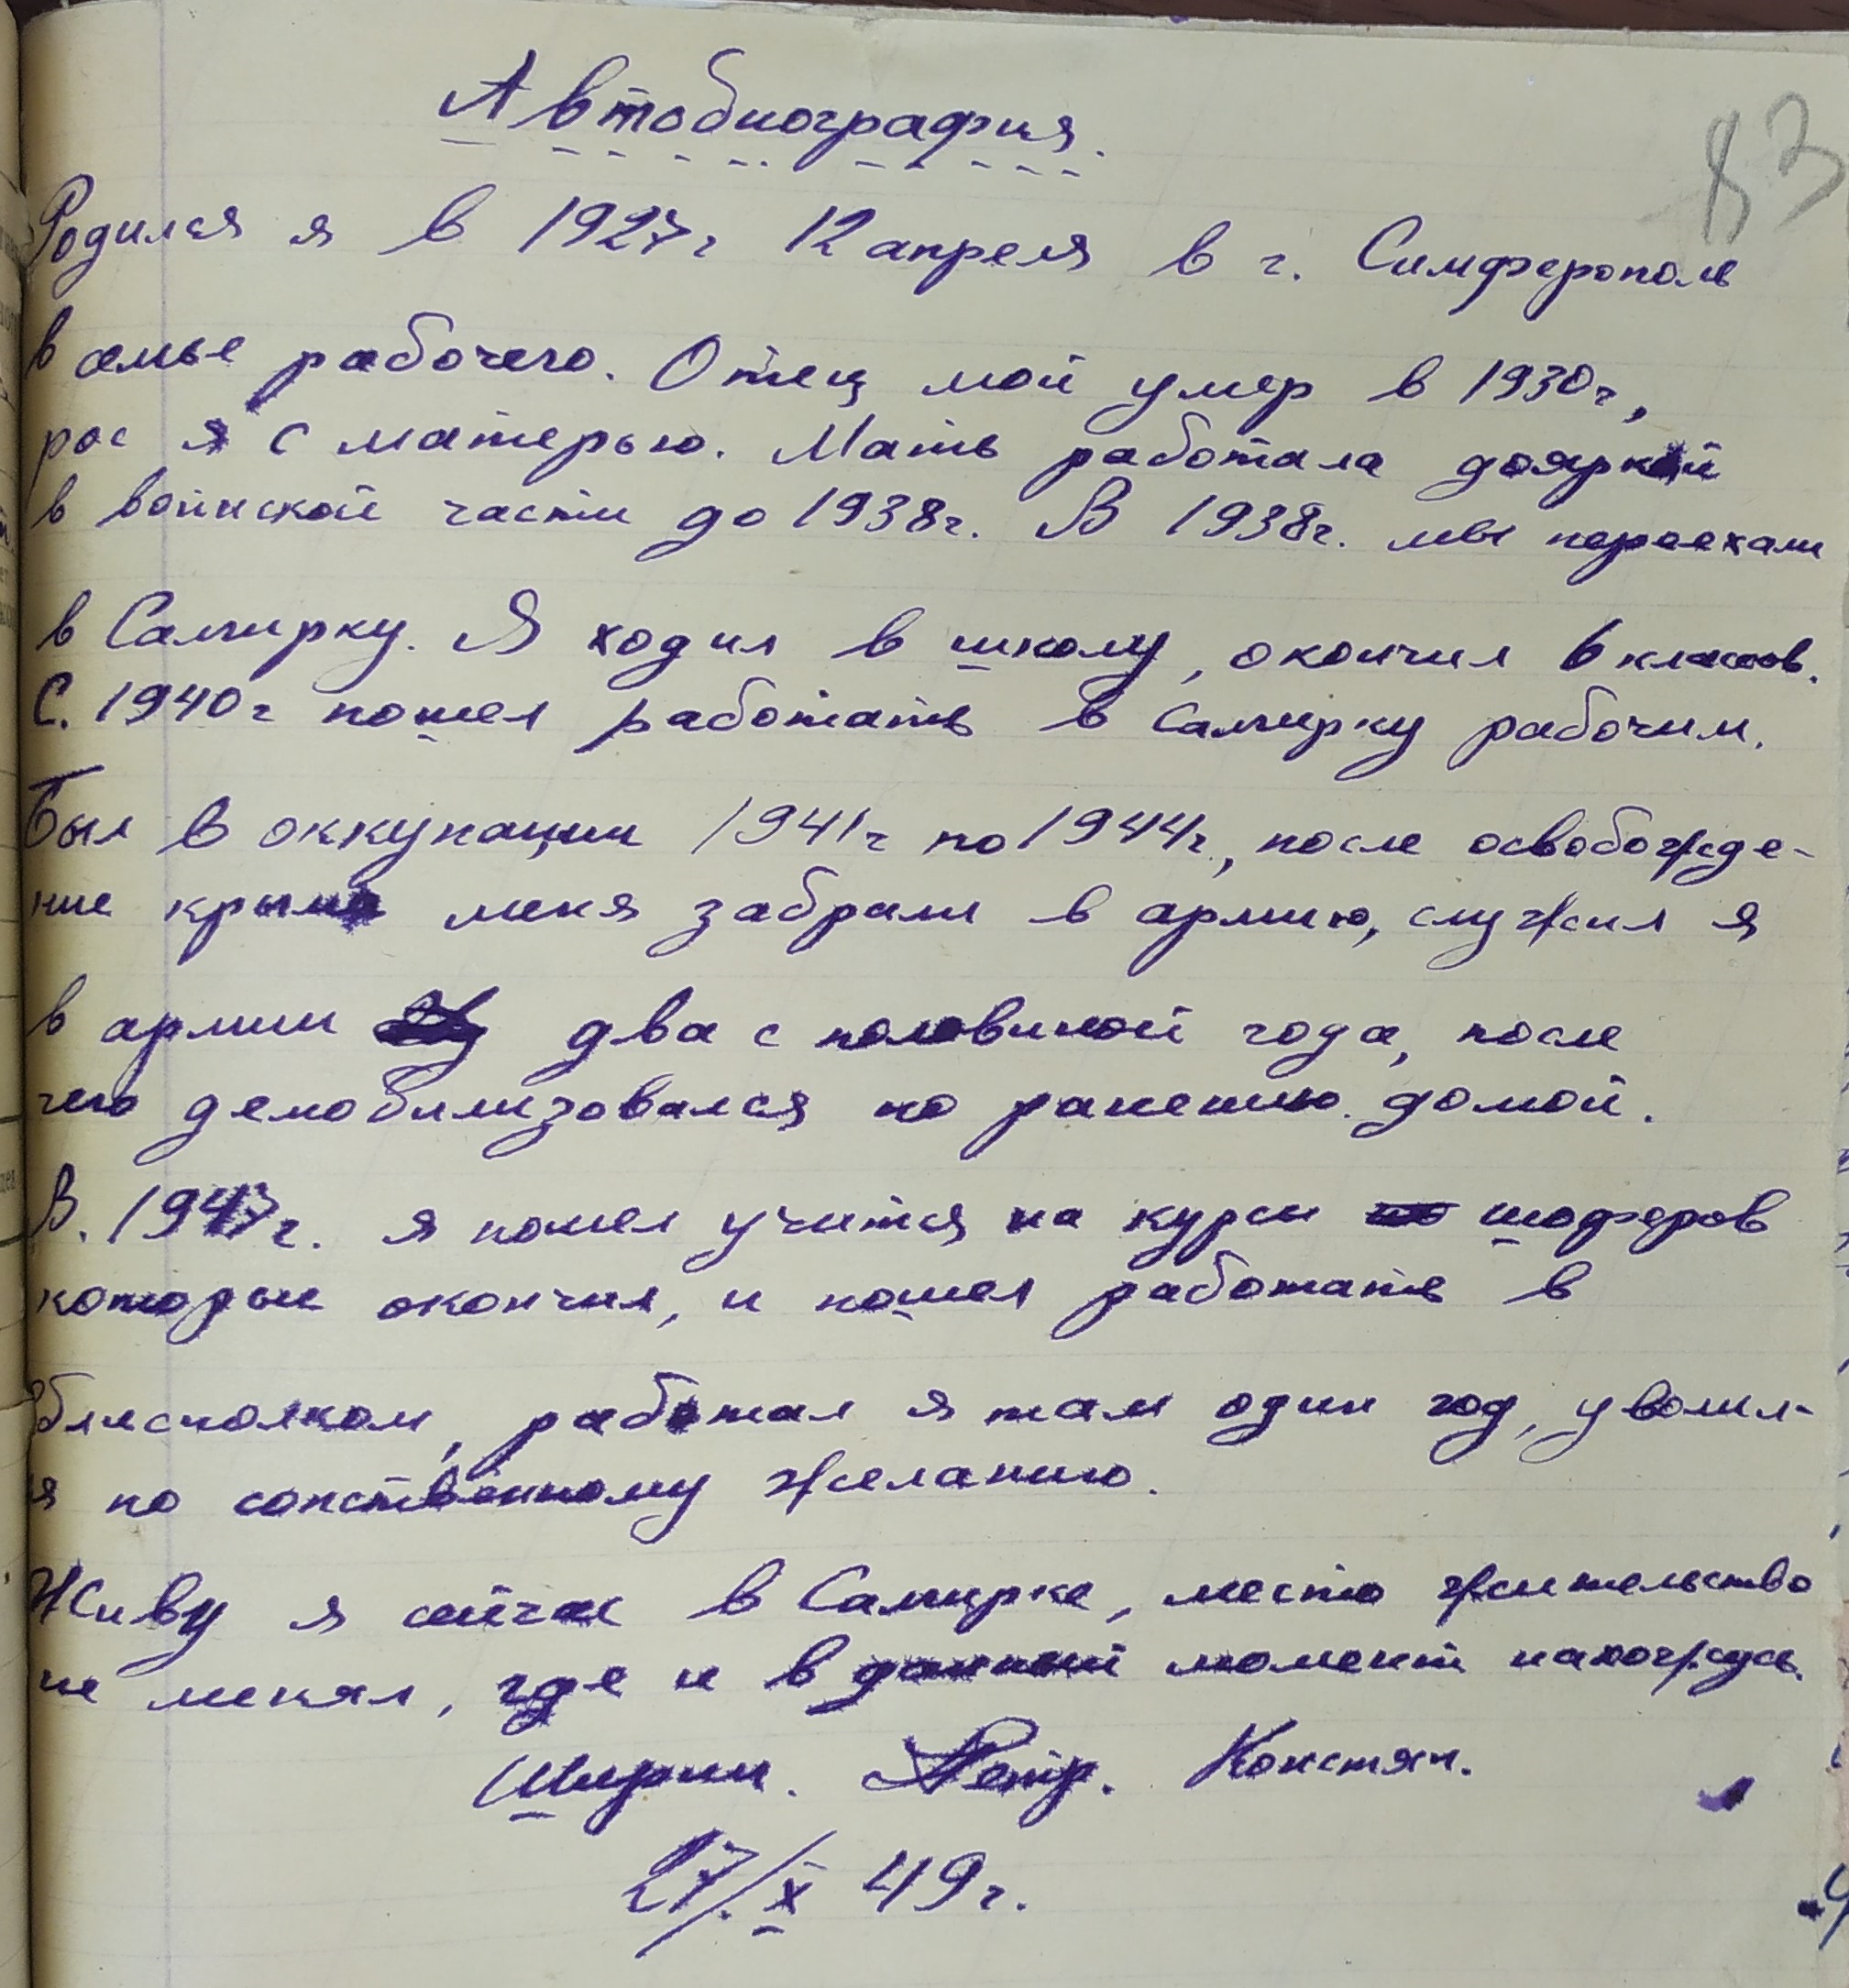 Автобиография.
83
Родился я в 1927г 12 апреля в г. Симферополе
в семье рабочего. Отец мой умер в 1930г,
рос я с матерью. Мать работала дояркой
в воинской части до 1938г. В 1938г. мы переехали
в Салгирку. Я ходил в школу, окончил 6 классов.
С. 1940г пошел работать в Салгирку рабочим.
Был в оккупации 1941г по 1944г, после освобожде-
ние крыма меня забрали в армию, служил я
в армии два с половиной года, после
чего демобилизовался по ранению домой.
В. 1947г. я пошел учится на курсы шоферов
которые окончил, и пошел работать в
Облисполком, работал я там один год, уволил-
я по сопственному желанию.
Живу я сейчас в Салгирке, место жительство
не менял, где и в данный момент нахожусь.
Ширин. Петр. Констян.
27/X 49г.